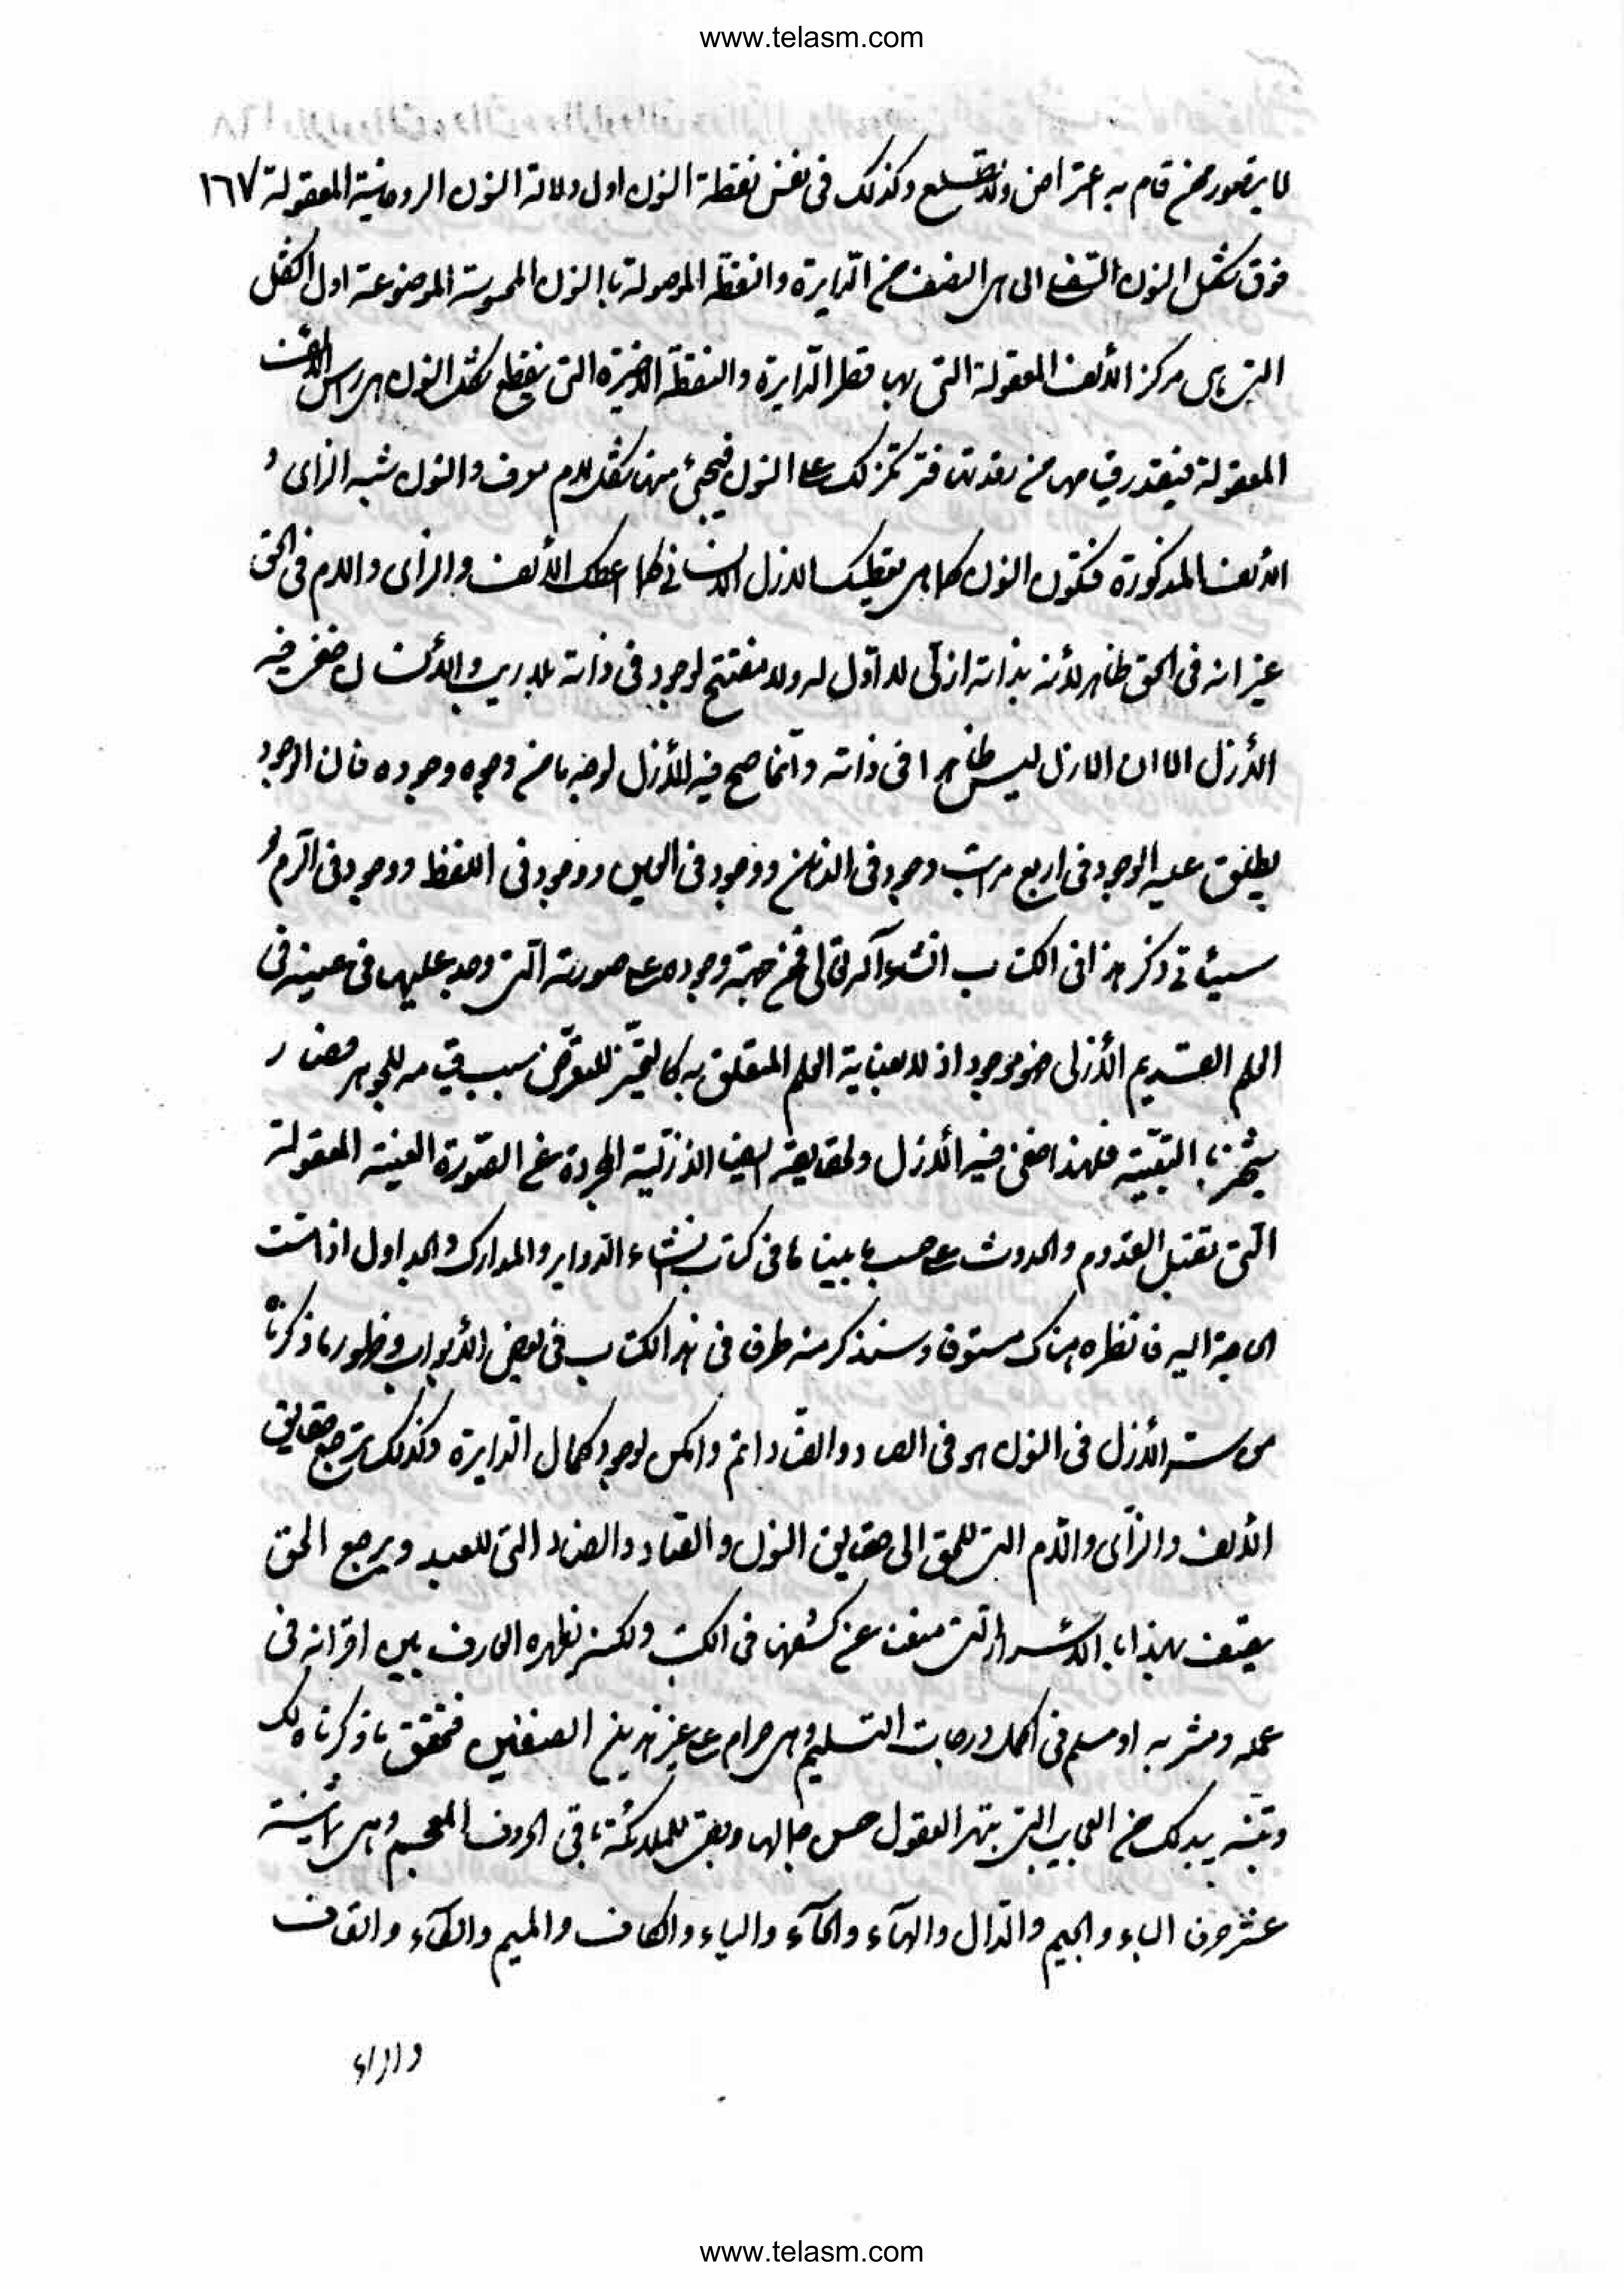 www.telasm.com
لا يتصور ممن قام به اعتراض و تطلع وكذلك فى نفس نقطة النون اول دلالة النون الروحانية المعقولة ١٦٧
فوق شكل النون السفلى التى هى النصف من الدايرة والنقطة الموصولة بالنون المحسوسة الموضوعة اول الشكل
التى هى مركز الألف المعقولة التى بها قطر الدايرة والنقطة الاخيرة التى ينقطع شكل النون هى راس الألف
المعقولة فيتقدر قيامها من رقدتها فترتكز لك على النون فيجئ منها شكل لام معرف والنون شبه الزاى و
الألف المذكورة فتكون النون كما هى يعطيك الازل الانسانى كما اعطك الألف والزاى واللام فى الحق
غير انه فى الحق ظاهر لأنه بذاته ازلى لا اول له ولا مفتتح لوجوده فى ذاته بلا ريب والانسان خفى فيه
الأزل الا ان الازل ليس ظاهرا فى ذاته وانما صح فيه الأزل لوجه ما من وجوه وجوده فان الوجود
يطلق عليه الوجود فى اربع مراتب وجود فى الذهن ووجود فى العين ووجود فى اللفظ ووجود فى الرقم و
سيئاتى ذكر هذا فى الكتاب انشاءالله تعالى فمن جهة وجوده على صورته التى وجد عليها فى عينه فى
العلم القديم الأزلى فهو موجود ازلا بعناية العلم المتعلق به كالتحيز للعرض بسبب قيامه للجوهر فصار
متحيزا بالتبعية فلهذا خفى فيه الأزل ولحقايقه ايضا الازلية المجردة عن الصورة العينية المعقولة
التى تقبل القدوم والحدوث على حسب ما بينا ما فى كتاب انشاء الدواير والمدارك والجداول اذا مست
الحاجة اليه فانظره هناك مستوفا وسنذكر منه طرفا فى هذا الكتاب فى بعض الأبواب وظهور ما ذكرناه
من سر الأزل فى النون هو فى الصاد والضاد اتم وامكن لوجود كمال الدايرة وكذلك ترجع حقايق
الألف والزاى واللام التى للحق الى حقايق النون والصاد والضاد التى للعبد ويرجع الحق
يتصف بهذا الأسرار التى منعنا عن كشفها فى الكتب ولكن يظهره العارف بين اقرانه فى
علمه ومشربه او مسلم فى اكمل درجات التسليم وهى حرام على غير هذين الصنفين فتحقق ما ذكرناه لك
وتبينه يبد لك من العجايب التى تبهر العقول حسن جمالها وبقى للملائكة باقى الحروف المعجم وهى ثمانية
عشر حرفا الباء والجيم والدال والهاء والحاء والياء والكاف والميم والطاء والقاف
والراء
www.telasm.com